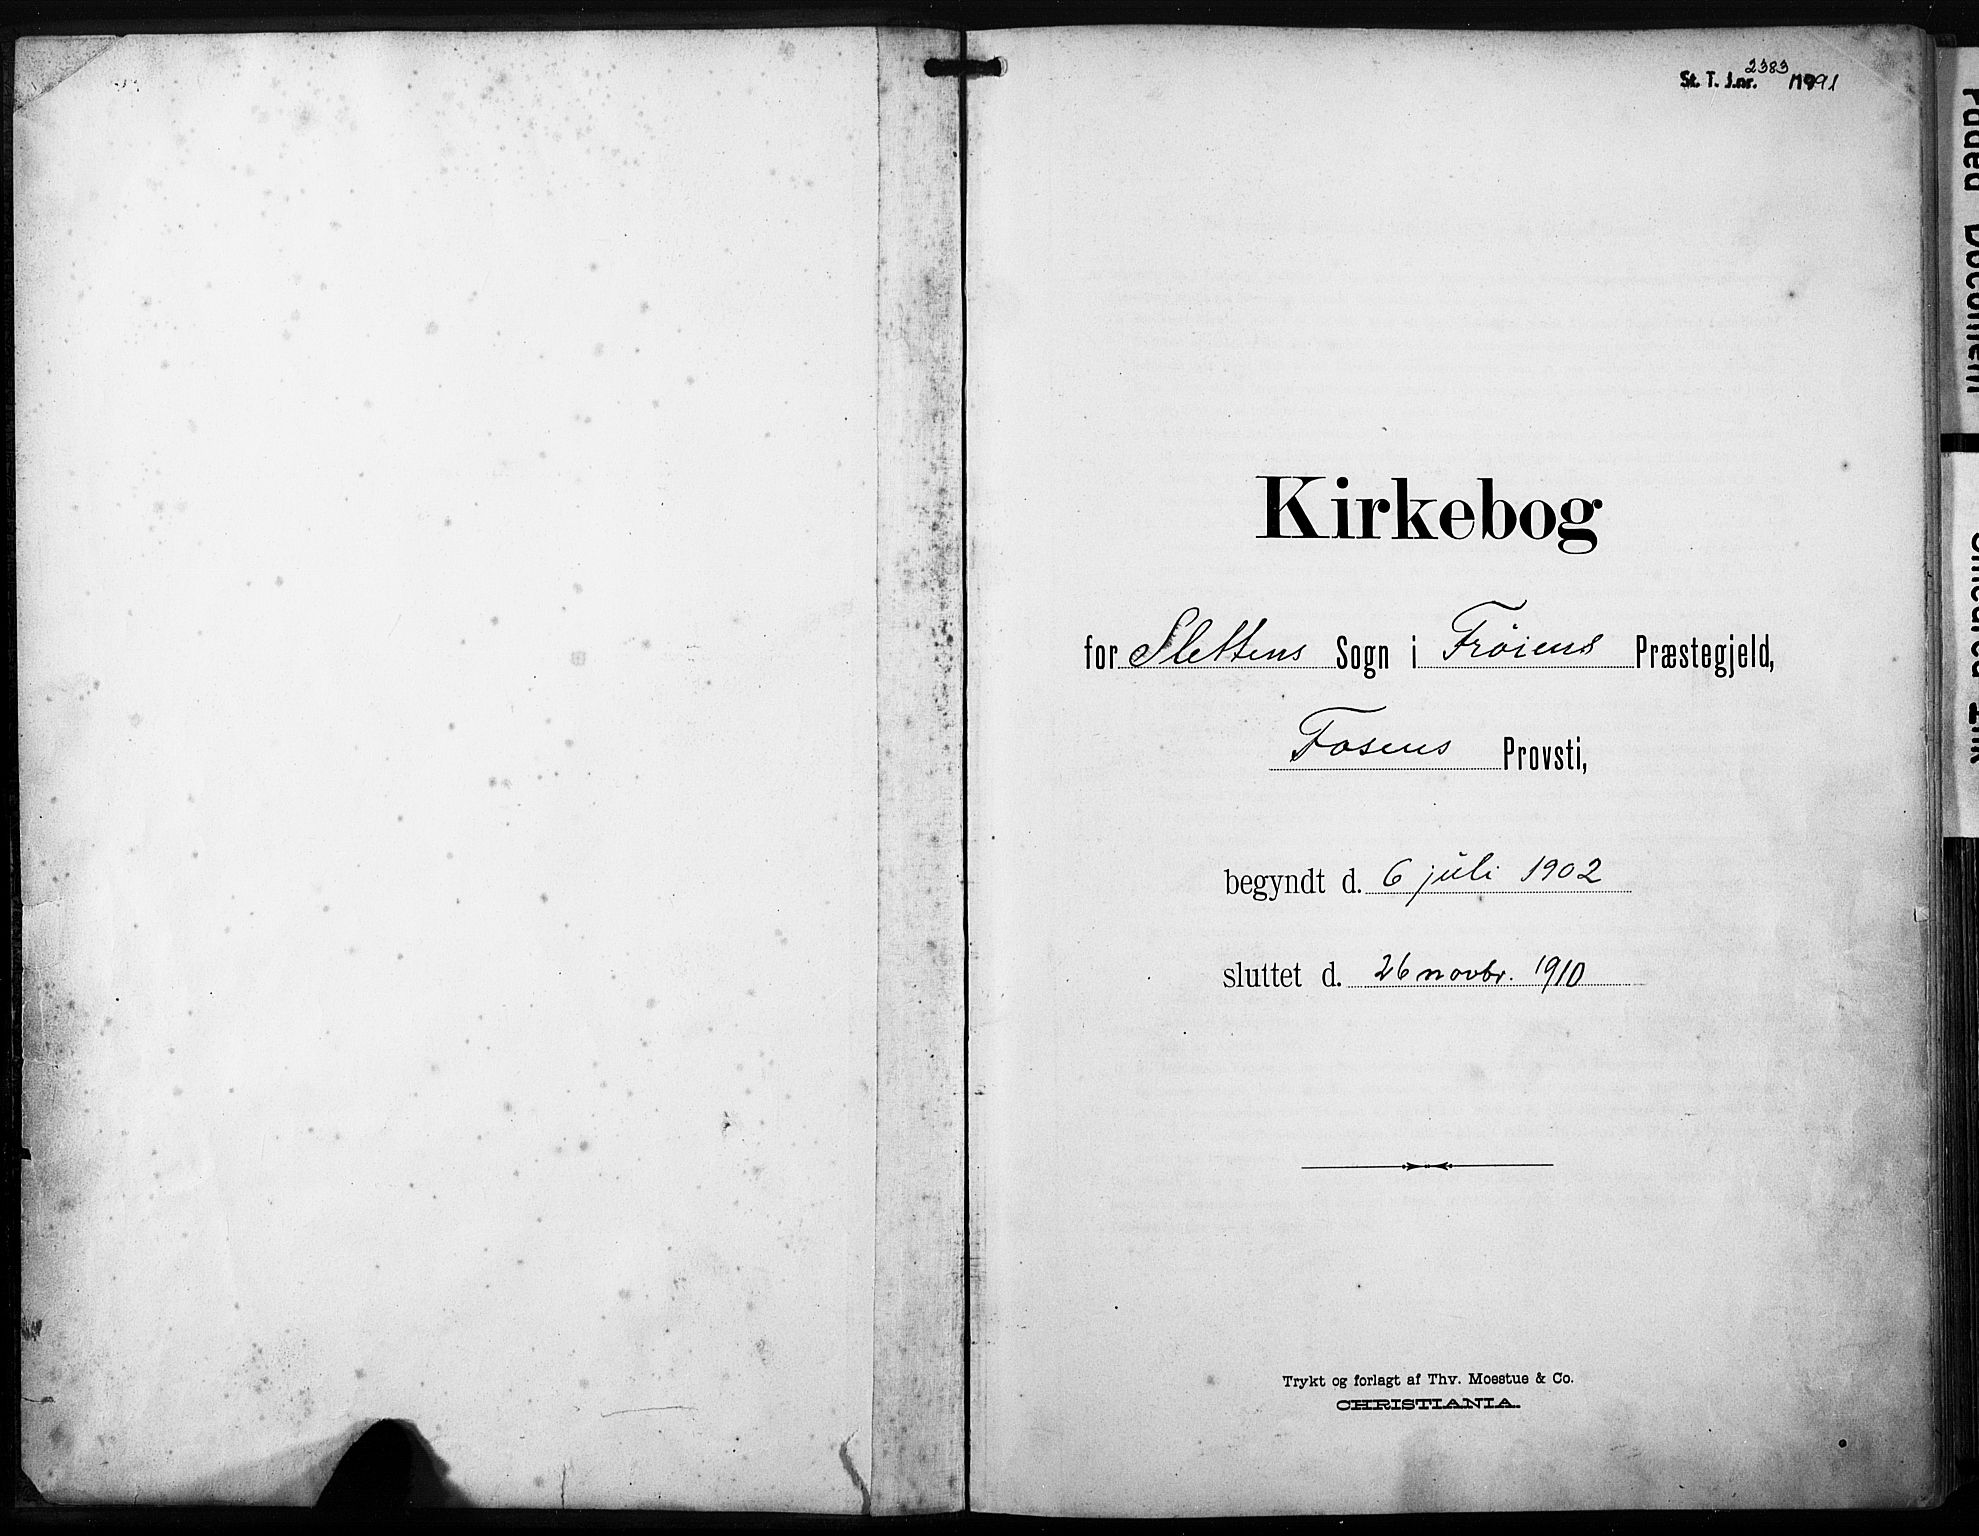 St. T. J.nr. 2383 1991
Kirkebog
for Slettens Sogn i Frøiens Præstegjeld,
Fosens Provsti,
begyndt d. 6 juli 1902
sluttet d. 26 novbr. 1910
Trykt og forlagt af Thv. Moestue & Co.
CHRISTIANIA.
Faded Document
Smeared Ink